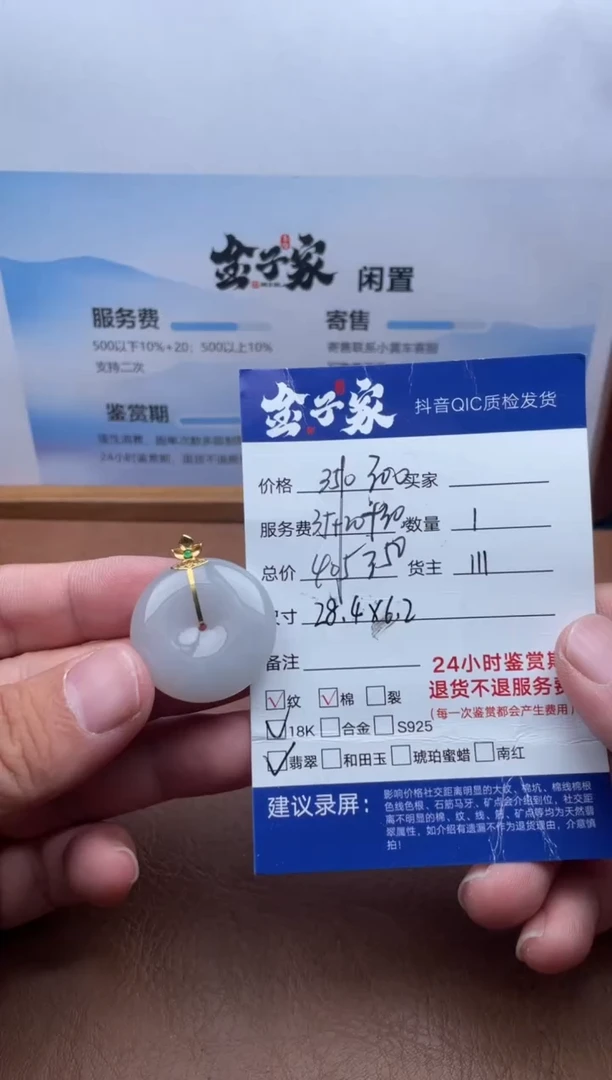 金子家 闲置
服务费
500以下10%+20；500以上10%
支持二次
寄售
寄售联系小黄车客服
鉴赏期
24小时鉴赏期，退货不退服务费
金子家 抖音QIC质检发货
价格 350 300 买家
服务费 35+20 +30 数量 1
总价 405 350 货主 111
尺寸 28.4×6.2
备注
24小时鉴赏期
退货不退服务费
(每一次鉴赏都会产生费用)
纹 棉 裂
18K 合金 S925
翡翠 和田玉 琥珀蜜蜡 南红
建议录屏：
影响价格社交距离明显的大纹、棉坑、棉线棉根
色线色根、石筋马牙，矿点会介绍到位，社交距
离不明显的棉、纹、线、筋、矿点等均为天然翡
翠属性，如介绍有遗漏不作为退货理由，介意慎
拍！